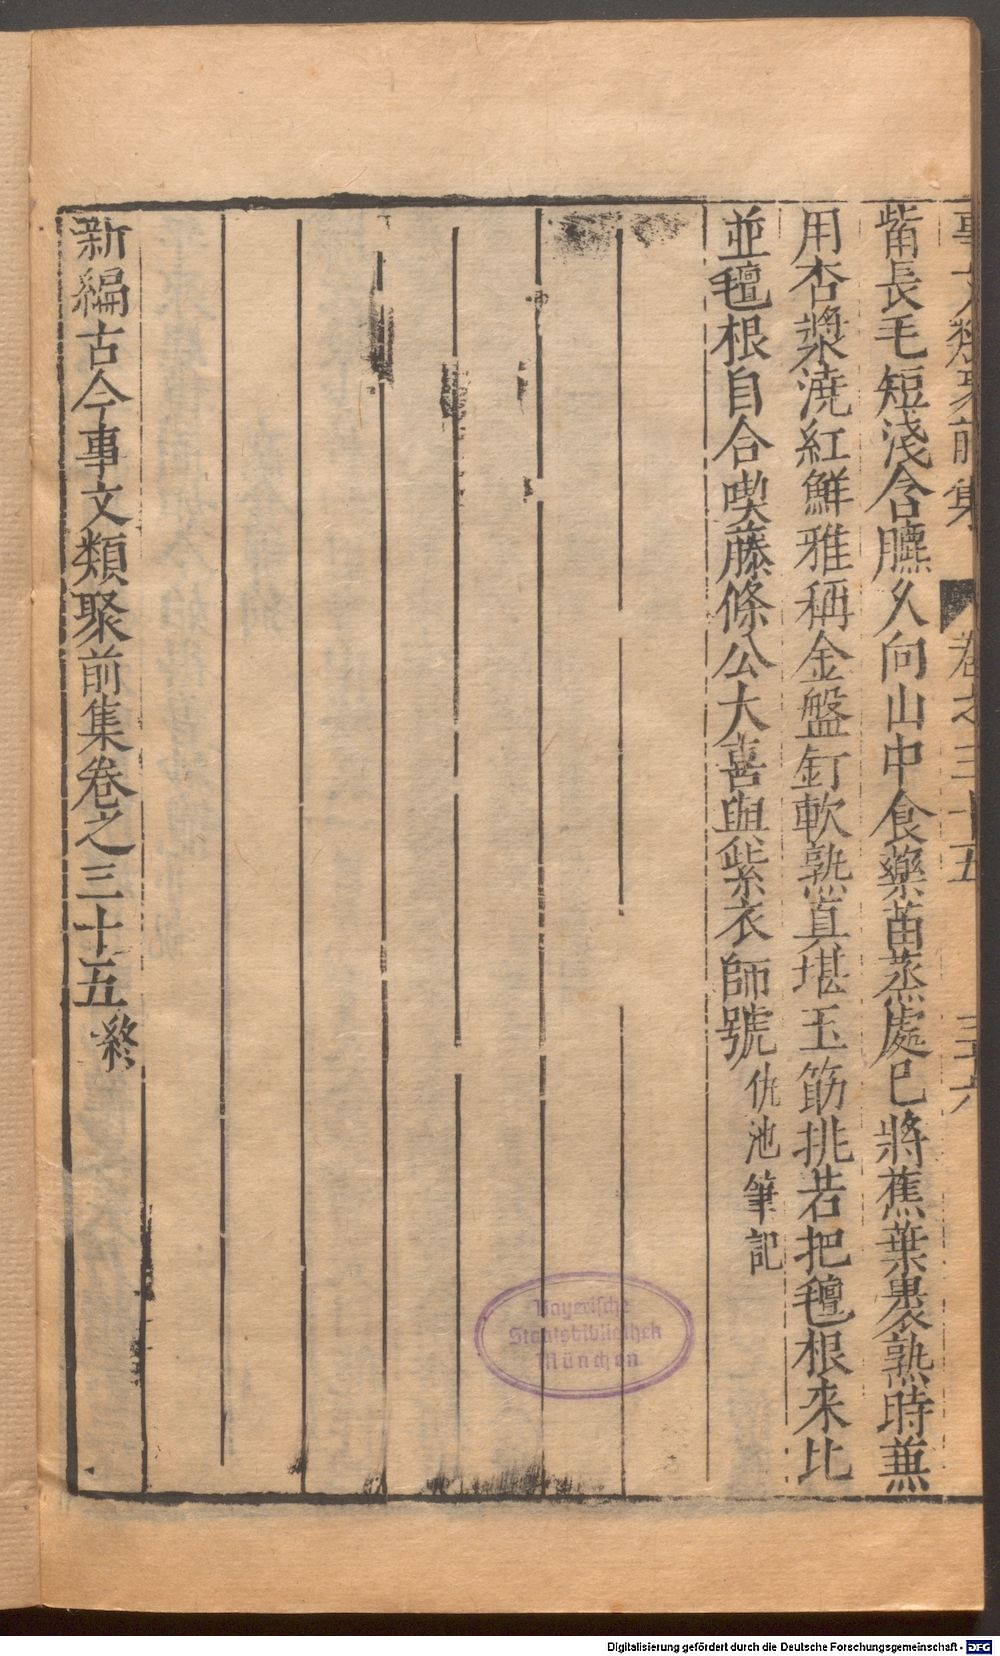 事文類聚前集 卷之三十五 三十六
觜長毛短淺含臕久向山中食藥苗蒸處已將蕉葉裹熟時兼
用杏漿澆紅鮮雅稱金盤飣軟熟真堪玉筯挑若把氊根来比
並氊根自合喫藤條公大喜與紫衣師號仇池筆記
新編古今事文類聚前集卷之三十五終
Bayerische
Staatsbibliothek
München
Digitalisierung gefördert durch die Deutsche Forschungsgemeinschaft - DFG